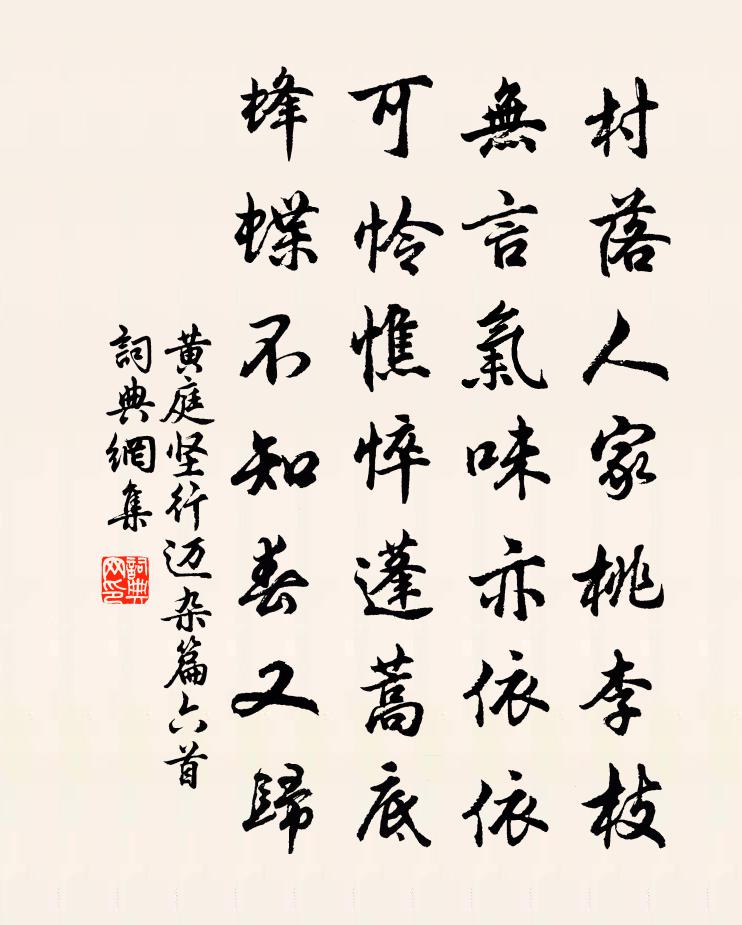 村落人家桃李枝
無言氣味亦依依
可怜憔悴蓬蒿底
蜂蝶不知春又歸
黄庭坚行迈杂篇六首
詞典網集
詞典
网印